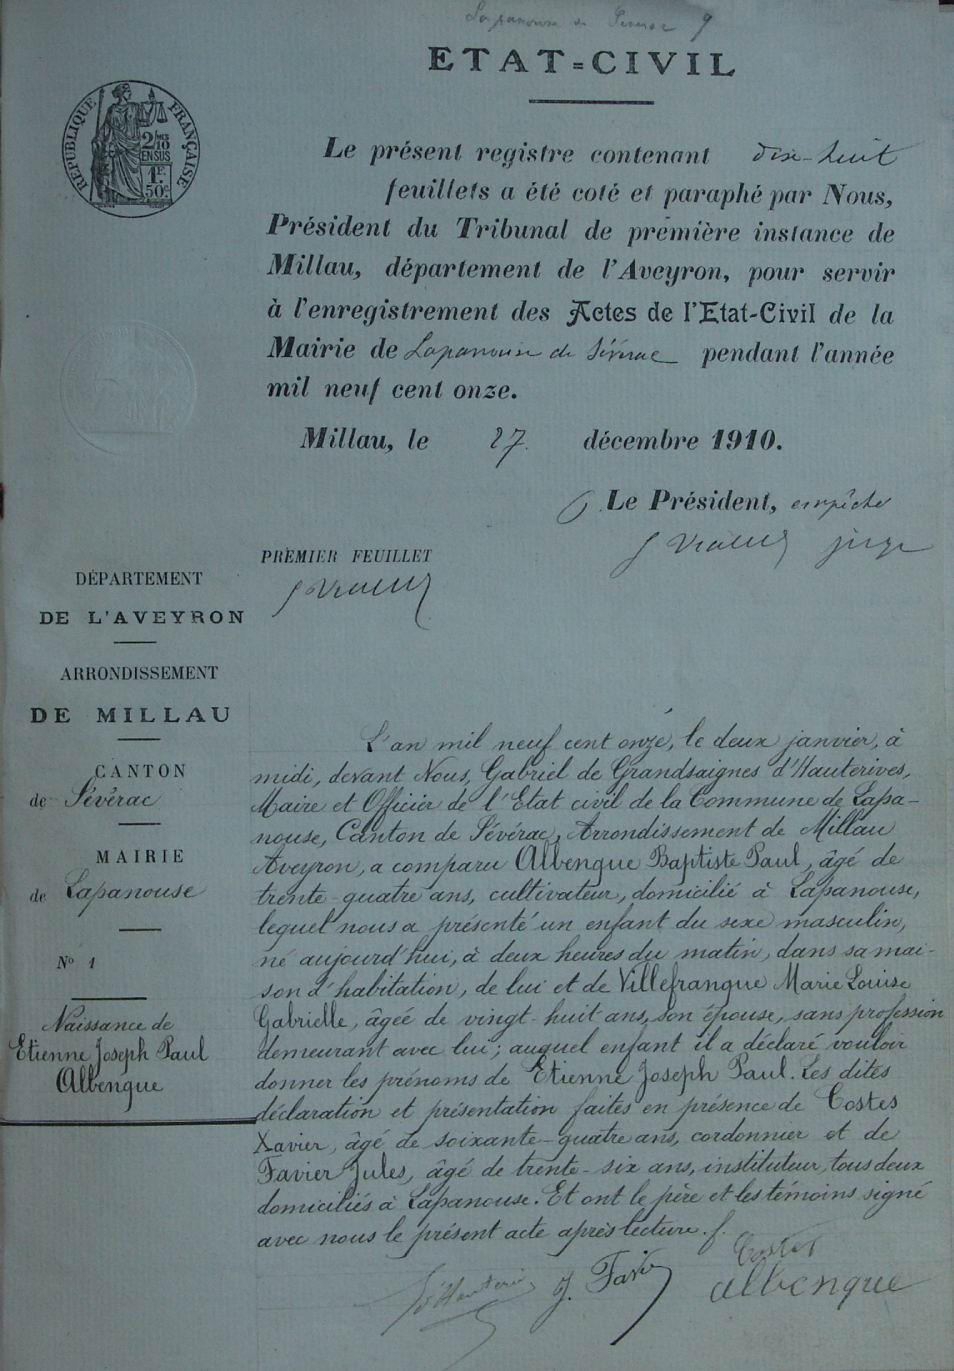 Lapanouse de Séverac 9
ETAT=CIVIL
RÉPUBLIQUE FRANÇAISE
2/10 EN SUS
1F 50c
Le présent registre contenant dix-huit
feuillets a été coté et paraphé par Nous,
Président du Tribunal de première instance de
Millau, département de l'Aveyron, pour servir
à l'enregistrement des Actes de l'Etat-Civil de la
Mairie de Lapanouse de Séverac pendant l'année
mil neuf cent onze.
Millau, le 27 décembre 1910.
Le Président, empêché
juge
PREMIER FEUILLET
DÉPARTEMENT
DE L'AVEYRON
ARRONDISSEMENT
DE MILLAU
CANTON
de Sévérac
MAIRIE
de Lapanouse
No 1
Naissance de
Etienne Joseph Paul
Albengue
L'an mil neuf cent onze, le deux janvier, à
midi, devant Nous, Gabriel de Grandsaignes d'Hauterives,
Maire et Officier de l'Etat civil de la Commune de Lapa-
nouse, Canton de Sévérac, Arrondissement de Millau
Aveyron, a comparu Albengue Baptiste Paul, âgé de
trente-quatre ans, cultivateur, domicilié à Lapanouse,
lequel nous a présenté un enfant du sexe masculin,
né aujourd'hui, à deux heures du matin, dans sa mai-
son d'habitation, de lui et de Villefranque Marie Louise
Gabrielle, âgée de vingt-huit ans, son épouse, sans profession
demeurant avec lui; auquel enfant il a déclaré vouloir
donner les prénoms de Etienne Joseph Paul. Les dites
déclaration et présentation faites en présence de Costes
Xavier, âgé de soixante-quatre ans, cordonnier et de
Favier Jules, âgé de trente-six ans, instituteur, tous deux
domiciliés à Lapanouse. Et ont le père et les témoins signé
avec nous le présent acte après lecture.
Costes
J. Favier
albenque